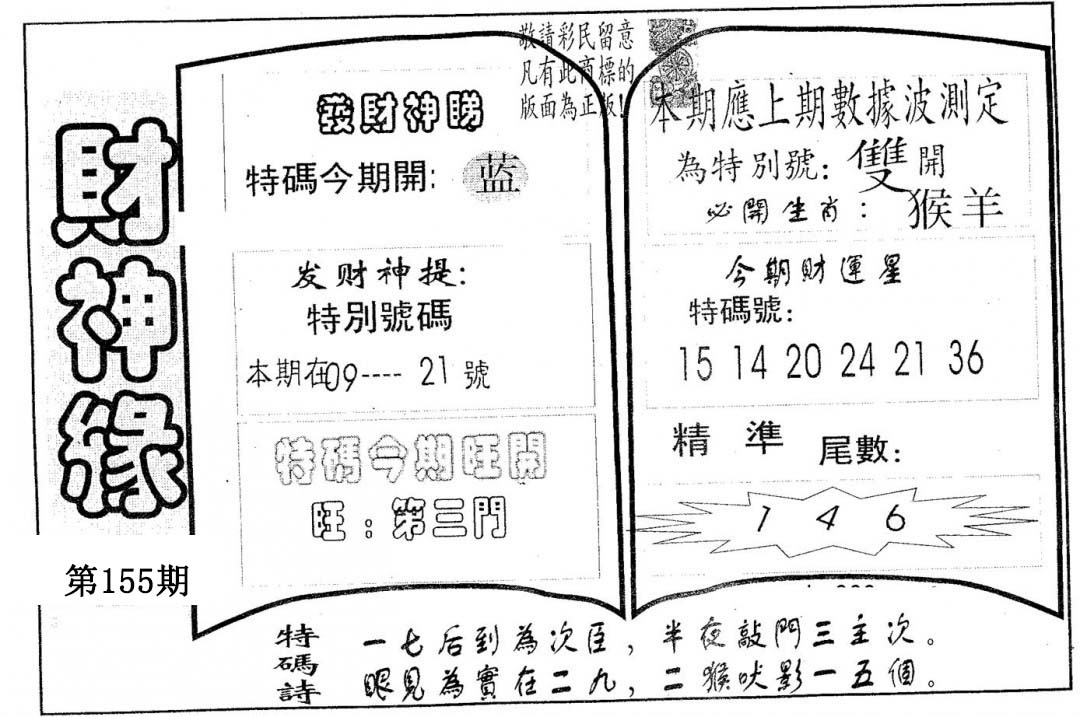 財神緣
第155期
敬請彩民留意
凡有此商標的
版面為正版!
發財神睇
特碼今期開: 蓝
发财神提:
特別號碼
本期在09---- 21 號
特碼今期旺開
旺:第三門
本期應上期數據波測定
為特別號: 雙開
必開生肖: 猴羊
今期財運星
特碼號:
15 14 20 24 21 36
精準 尾數:
1 4 6
特碼詩
一七后到為次臣,半夜敲門三主次。
眼見為實在二九,二猴吠影一五個。